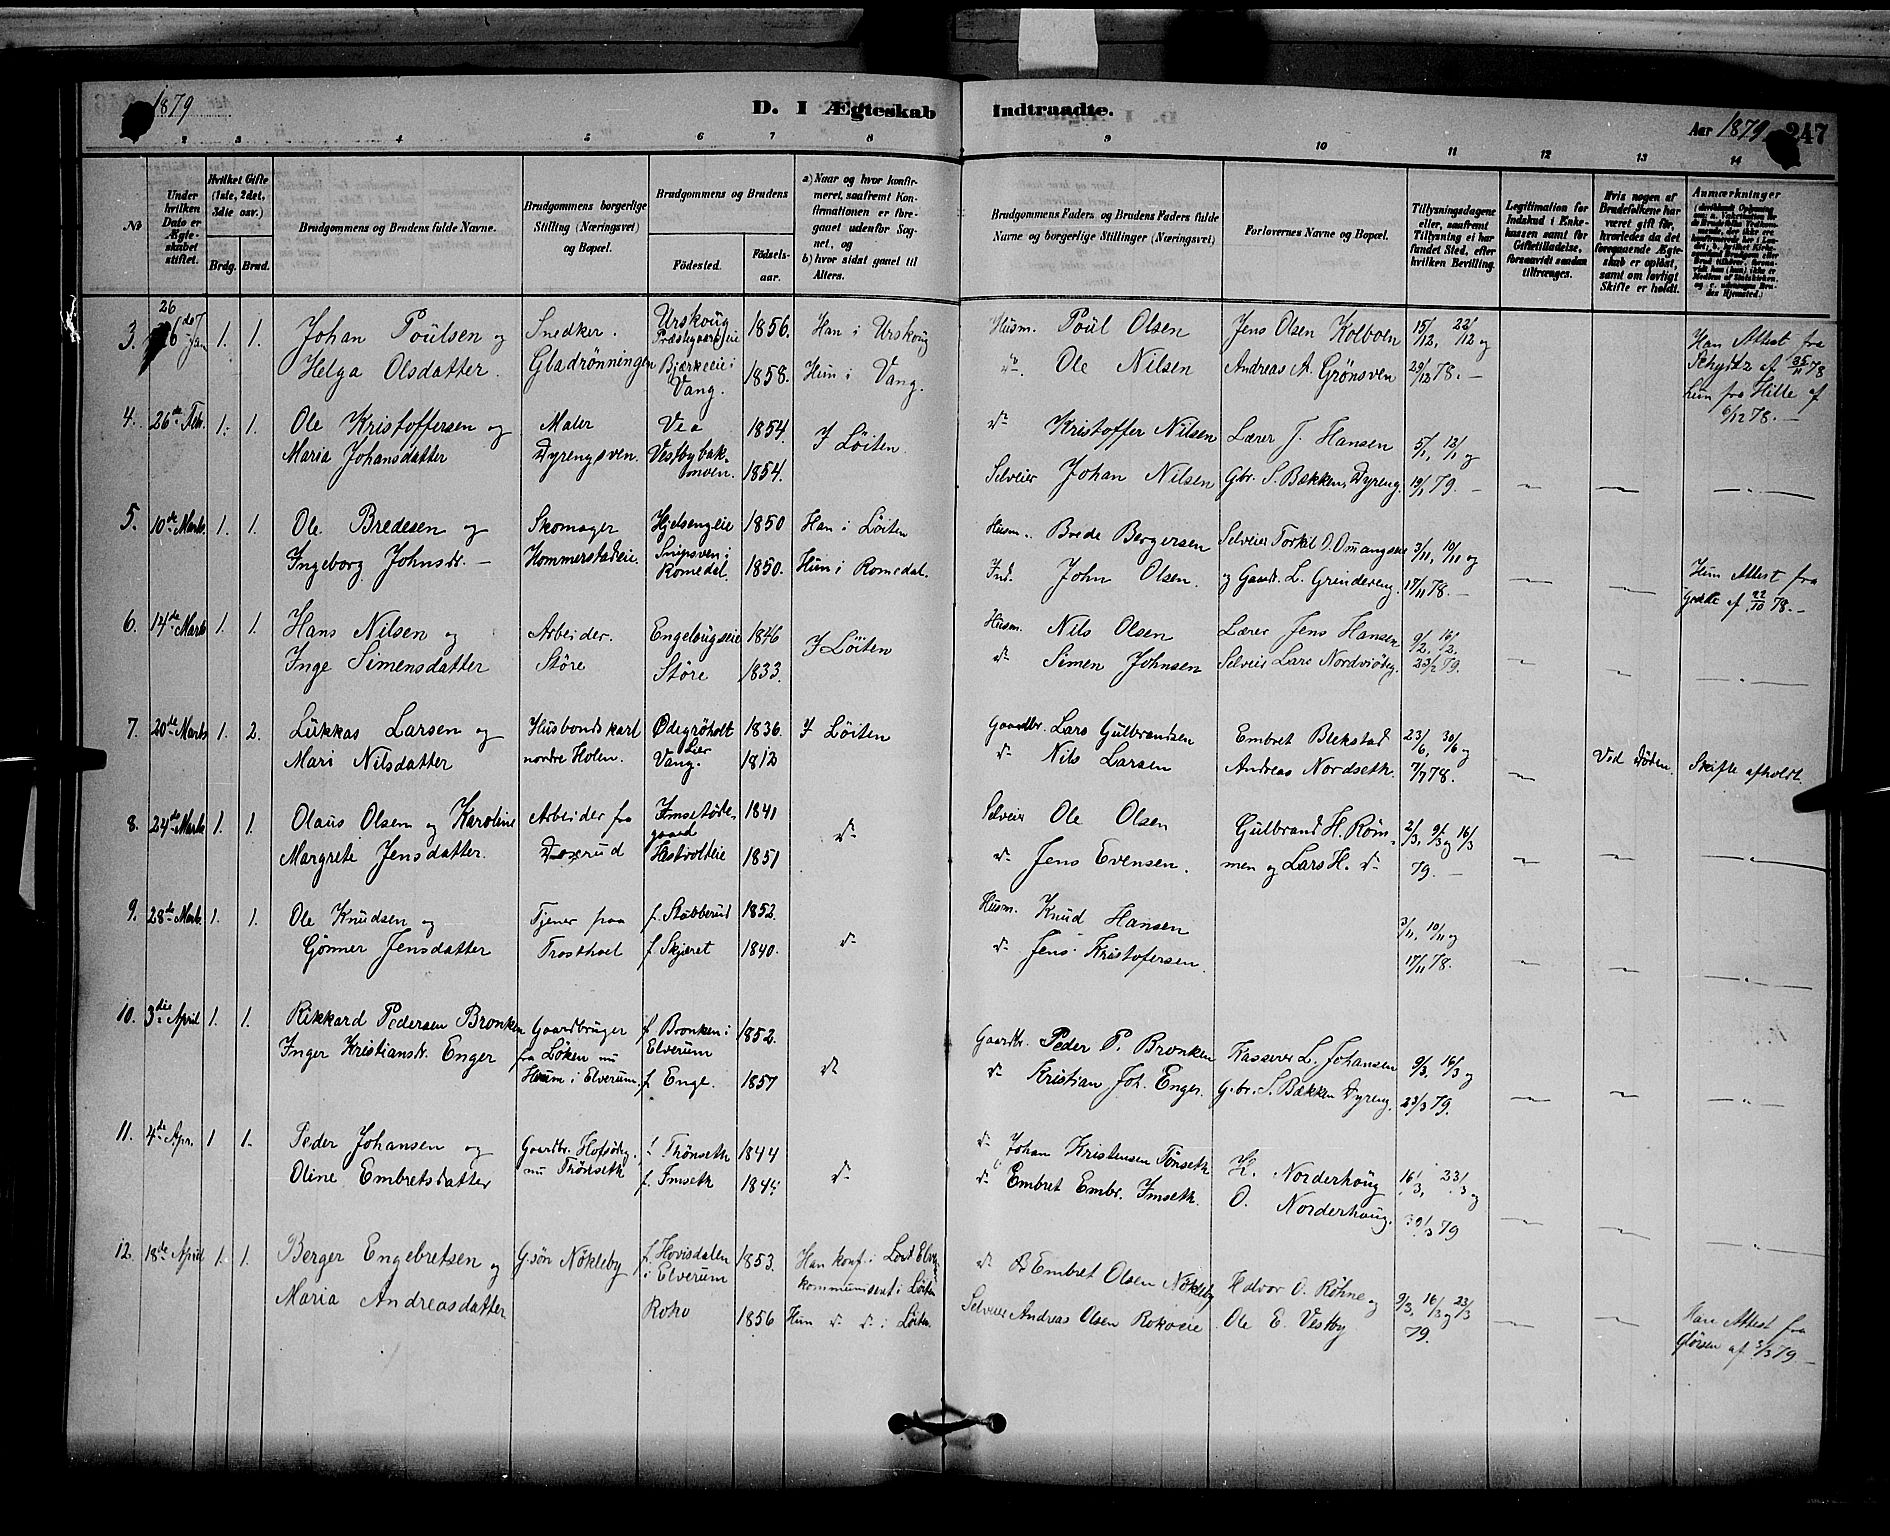 1879
D. I Ægteskab Indtraadte.
Aar 1879
247
2 3 4 5 6 7 8 9 10 11 12 13 14
№
Under hvilken Dato er Ægteskabet stiftet.
Hvilket Gifte (1ste, 2det, 3die osv.)
Brdg. Brud.
Brudgommens og Brudens fulde Navne.
Brudgommens borgerlige Stilling (Næringsvei) og Bopæl.
Brudgommens og Brudens
Fødested.
Fødselsaar.
a) Naar og hvor konfirmeret, saafremt Konfirmationen er foregaaet udenfor Sognet, og
b) hvor sidst gaaet til Alters.
Brudgommens Faders og Brudens Faders fulde Navne og borgerlige Stillinger (Næringsvei)
Forlovernes Navne og Bopæl.
Tillysningsdagene eller, saafremt Tillysning ei har fundet Sted, efter hvilken Bevilling.
Legitimation for Indskud i Enkekassen samt for Giftetilladelse, forsaavidt saadan tiltrænges.
Hvis nogen af Brudefolkene har været gift før, hvorledes da det foregaaende Ægteskab er opløst, samt om lovligt Skifte er holdt.
Anmærkninger
3. 26de Jan 1. 1. Johan Poulsen og Snedker. Urskoug Præstegaardseie 1856. Han i Urskoug Husm. Poul Olsen Jens Olsen Kolboen 15/12, 22/12 og Han Attest fra
Helga Olsdatter. Gladrønningen Bjærkeeie i Vang. 1858. Hun i Vang. " Ole Nilsen Andreas A. Grønsven 29/12 78. — Schydtz af 25/11 78
Hun fra Hille af 6/12 78. —
4. 26de Febr. 1. 1. Ole Kristoffersen og Maler Vea 1854. I Løiten. do Kristoffer Nilsen Lærer J. Hansen 5/1, 12/1 og
Maria Johansdatter Dyrengsven. Vestbybakmoen. 1854. Selveier Johan Nilsen Gbr. S. Bækken, Dyreng. 19/1 79. —
5. 10de Marts. 1. 1. Ole Bredesen og Skomager Hjelsengeie 1850 Han i Løiten Husm. Brede Bergersen Selveier Torkel O. Omangseie 3/11, 10/11 og
Ingeborg Johnsdr. — Hommerstadeie. Snipsven i Romedal. 1850. Hun i Romedal. Ind. John Olsen. og Gaardbr. L. Grindereng. 17/11 78. — Hun Attest fra
af 22/10 78. —
6. 14de Marts 1. 1. Hans Nilsen og Arbeider. Engelougseie 1846 I Løiten Husm. Nils Olsen Lærer Jens Hansen 9/2, 16/2.
Inge Simensdatter Støre Støre 1833. do Simen Johnsen Selveier Lars Nordviöby. 23/2 79.
7. 20de Marts 1. 2. Lukkas Larsen og Husbondskarl Ødegrøholt 1836. I Løiten Gaardbr. Lars Gulbrandsen Embret Bekstad 23/6, 30/6 og
Mari Nilsdatter nordre Holen. Vang. 1812 do Nils Larsen Andreas Nordseth. 7/7 78. Ved Døden. Skifte afholdt.
8. 24de Marts 1. 1. Olaus Olsen og Karoline Arbeider fra Imsetødegaard 1841 do Selveier Ole Olsen Gulbrand H. Røm- 2/3, 9/3 og 16/3
Margrete Jensdatter. Dæxrud Hæstvolteie 1851 do Jens Evensen. men og Lars H. do 79. —
9. 28de Marts. 1. 1. Ole Knudsen og Tjener paa f. Stubberud 1852. do Husm. Knud Hansen 3/11, 10/11 og
Gønner Jensdatter Trosthoel f. Skjæret 1840. do Jens Kristofersen. 17/11 78.
10. 3die April 1. 1. Rikkard Pedersen Bronken Gaardbruger f. Bronken i 1852. do Gaardbr. Peder P. Bronken Kasserer L. Johansen 9/3, 16/3 og
Inger Kristiansdr. Enger fra Løken nu Elverum
Hum i Elverum. f. Enge. 1857 do Kristian Joh. Enger. Gbr. S. Bækken Dyreng. 23/3 79.
11. 4de Apr. 1 1. Peder Johansen og Gaardbr. Hofsødeg. f. Thønseth 1844 do do Johan Kristensen Tønseth K. Norderhoug 16/3, 23/3 og
Oline Embretsdatter nu Thønseth f. Imseth 1845 do Embret Embr. Imseth. O. Norderhoug. 30/3 79
12. 18de April 1. 1. Berger Engebretsen og G.søn Nökleby f. Hovisdalen i Elverum 1853. Han konf. i kommuniseret i Løiten do Embret Olsen Nökleby Halvor O. Røhne og 9/3, 16/3 og 23/3
Maria Andreasdatter Roko 1856 Hun do do i Løiten. Selveier Andreas Olsen Rokoeie Ole E. Vestby 79. Han Attest fra
af 5/3 79 —